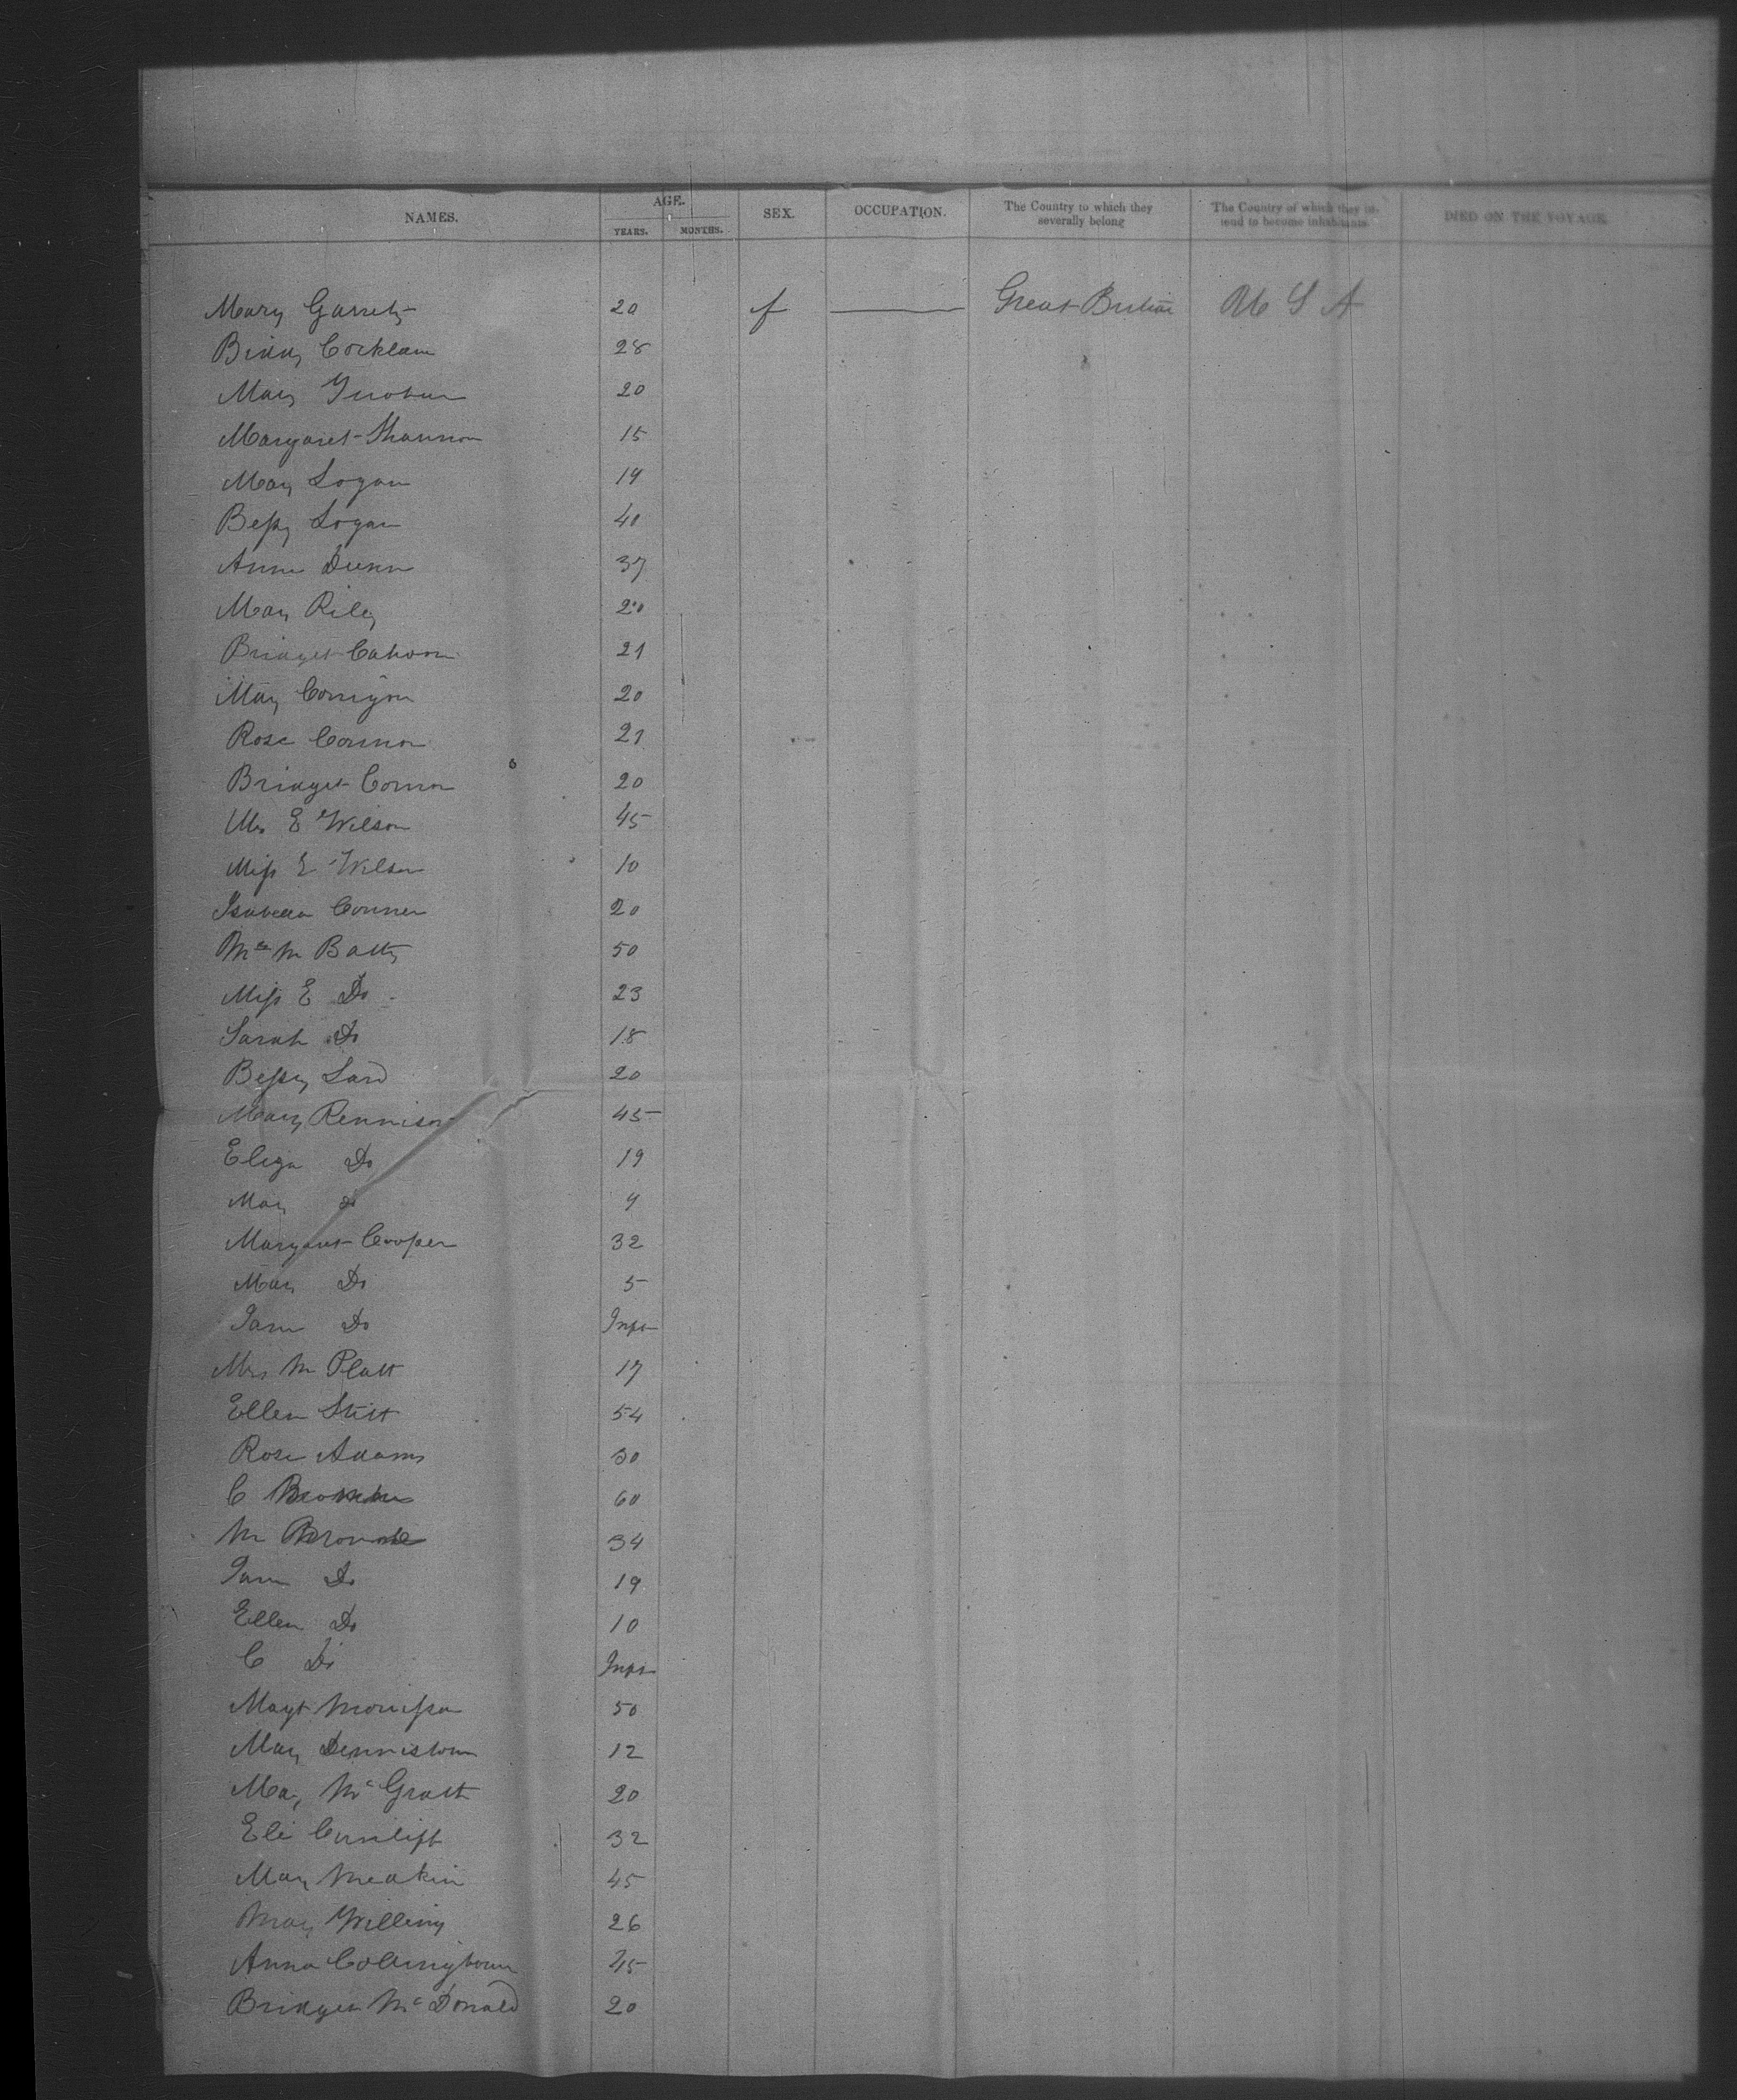 NAMES. AGE. SEX. OCCUPATION. The Country to which they severally belong The Country of which they intend to become inhabitants. DIED ON THE VOYAGE.
YEARS. MONTHS.
Mary Garrety 20 f Great Britain U S A
Biddy 28
Mary 20
Margaret Shannon 15
Mary Logan 19
Bessy Logan 40
Anne Dunn 37
Mary Riley 20
Bridget Cahoon 21
Mary Corrigan 20
Rose Connor 21
Bridget Connor 20
Mrs E Wilson 45
Miss E Wilson 10
Isabella Conner 20
Mrs M Batty 50
Miss E Do 23
Sarah Do 18
Bessy 20
Mary Rennison 45
Eliza Do 19
Mary Do 9
Margaret Cooper 32
Mary Do 5
Jane Do Inft
Mrs M Platt 17
Ellen Stitt 54
Rose Adams 30
C 60
M 34
Jane Do 19
Ellen Do 10
C Do Inft
Magt Morrison 50
Mary Dennistown 12
Mary McGrath 20
Eli Cunlift 32
Mary Meakin 45
Mary Willing 26
Anna Collingbourn 45
Bridget McDonald 20